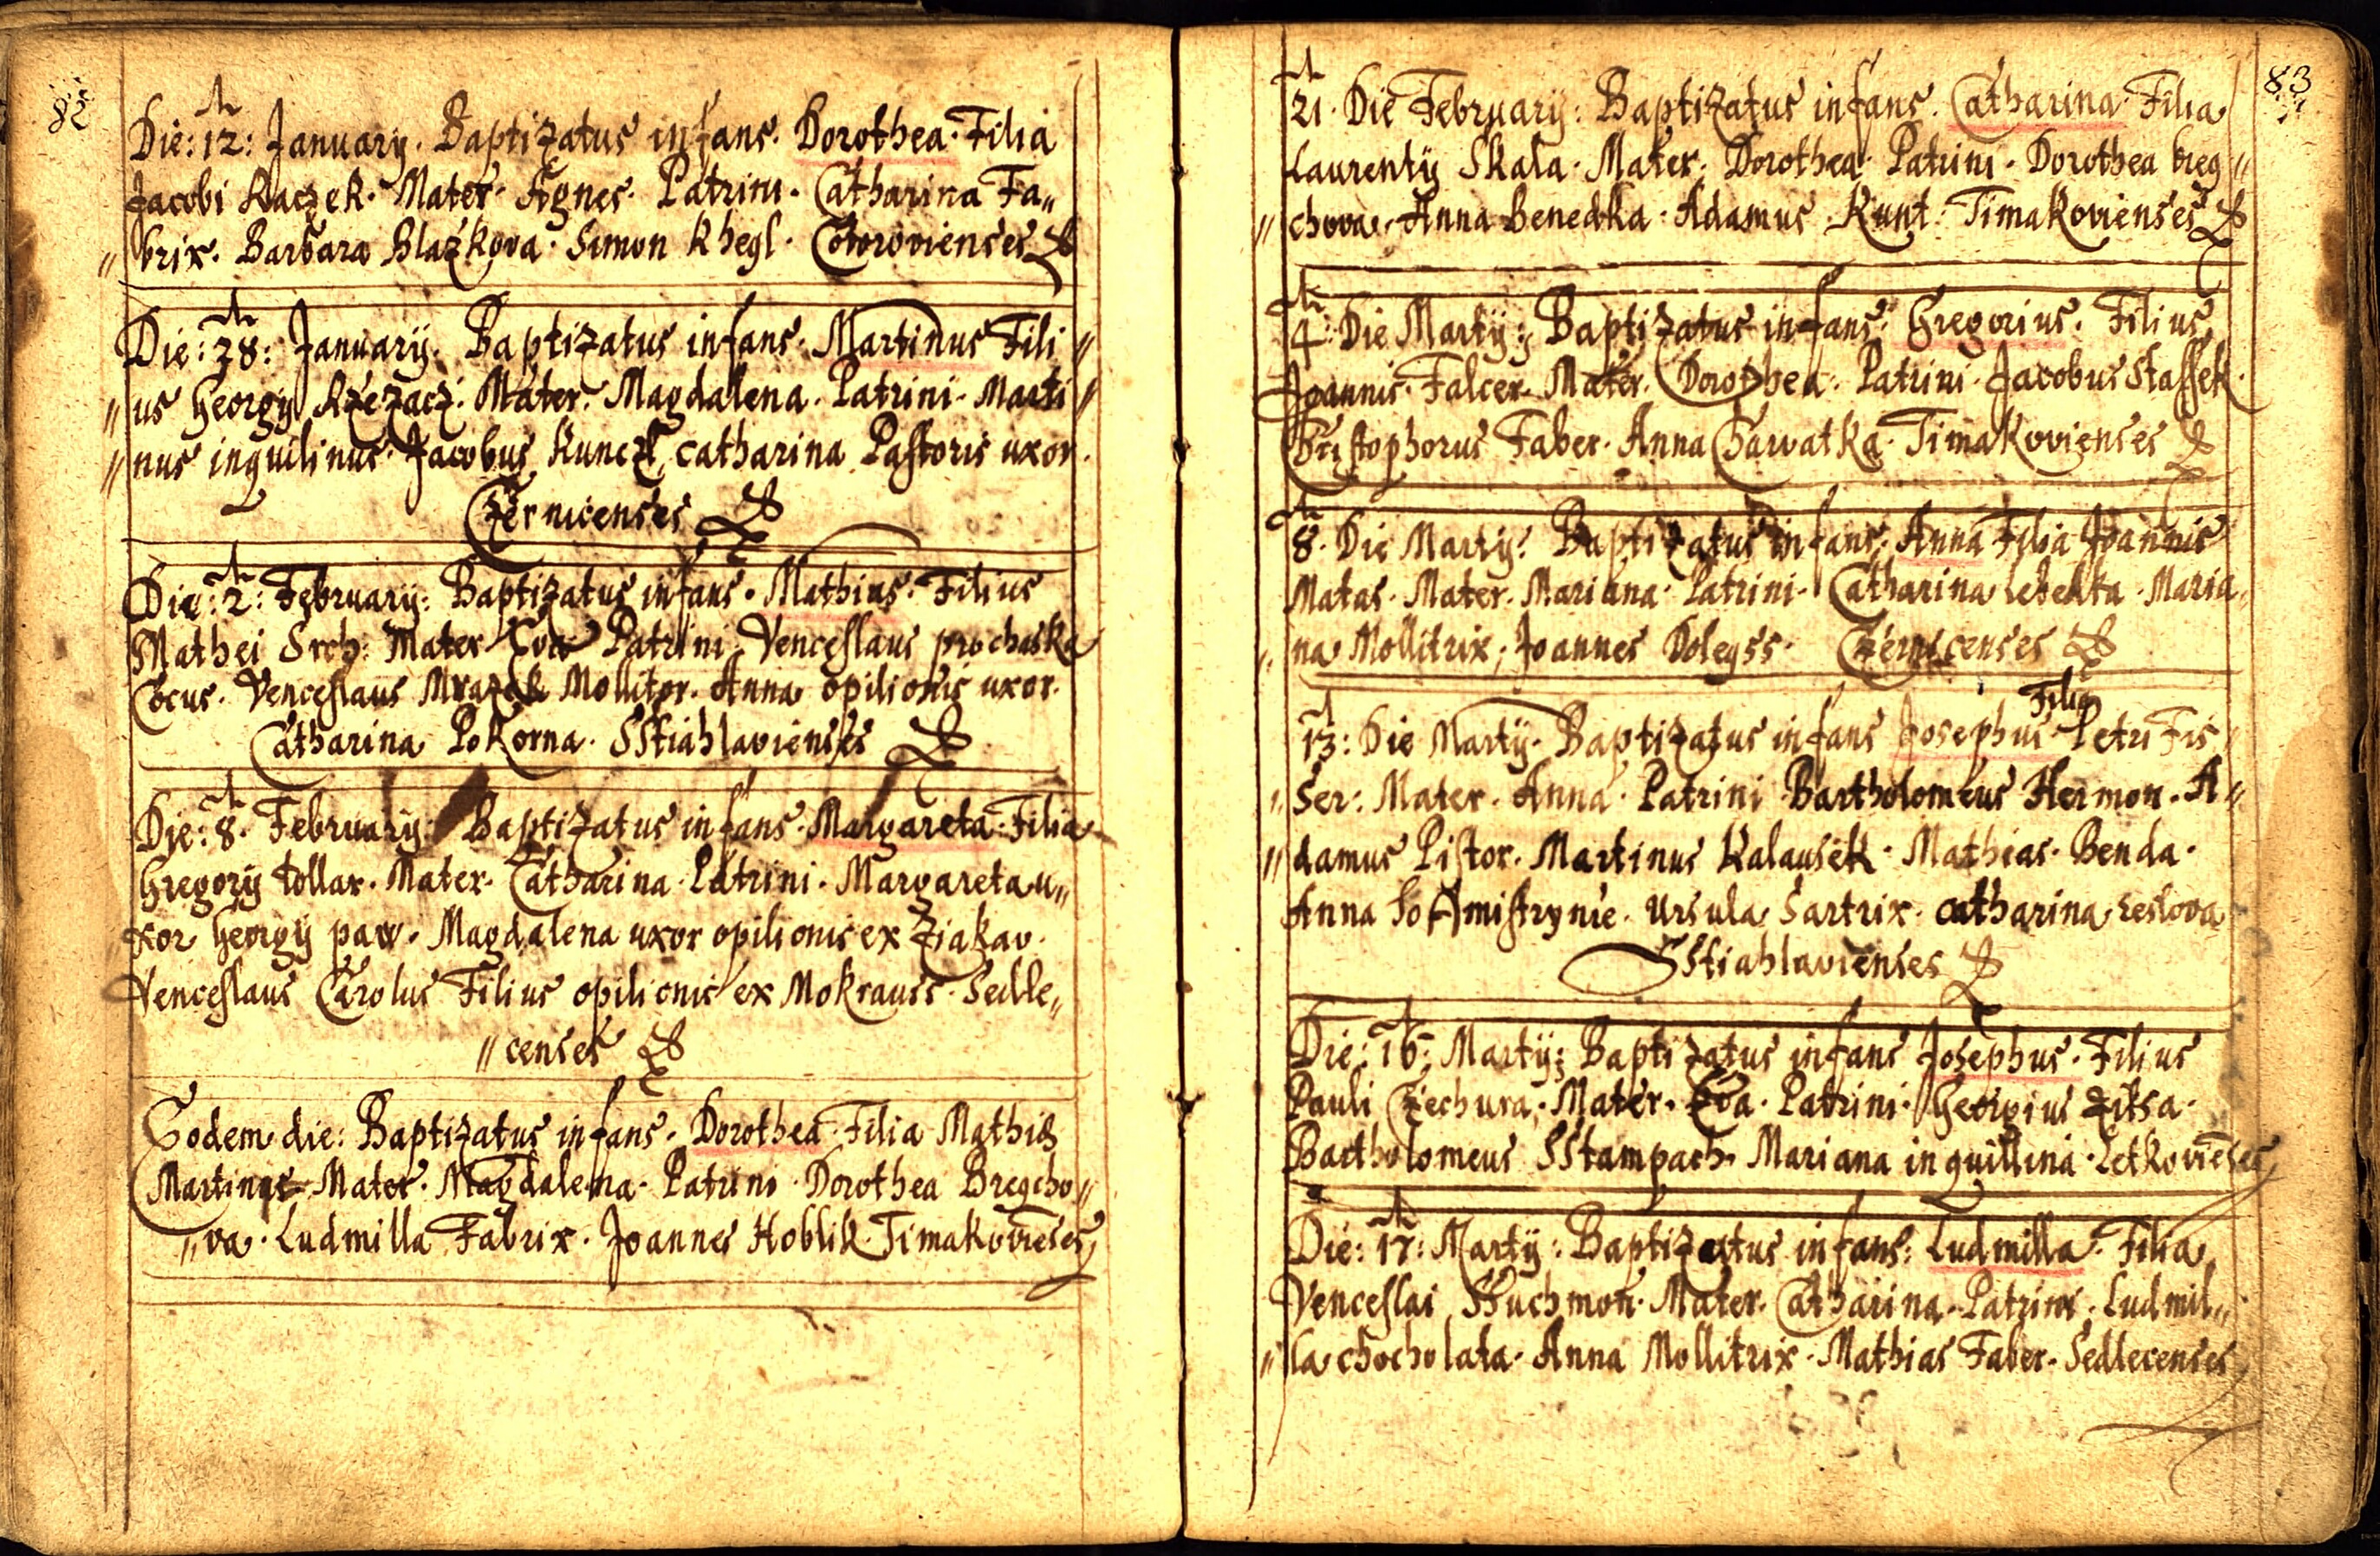 82
Die: 12: January. Baptizatus infans. Dorothea. Filia
Jacobi Raczek. Mater. Agnes. Patrini. Catharina Fa„
„ brix. Barbara Blazkova. Simon Khegl. Cotorovienses
Die: 28: Januarij. Baptizatus infans. Martinus Fili „
„ us Georgij Rzezacz: Mater. Magdalena. Patrini. Marti „
„ nus inquilinus. Jacobus Kunczl, Catharina Pastoris uxor.
Czernicenses
Die: 2: Februarij: Baptizatus infans. Mathias. Filius
Mathei Srch: Mater Eva Patrini Venceslaus prochaska
Cocus. Venceslaus Mrazek Mollitor. Anna opilionis uxor.
Catharina Pokorna. SStiahlavienses
Die: 8. Februarij: Baptizatus infans. Margareta. Filia
Gregorij tollar. Mater. Catharina. Patrini. Margareta u„
xor Georgij paw. Magdalena uxor opilionis ex Ziakav.
Venceslaus Carolus Filius opilionis ex Mokrauss. Sedle„
„ censes
Eodem die: Baptizatus infans. Dorothea. Filia Mathiæ
Martinec Mater. Magdalena. Patrini. Dorothea Bregcho „
„ va. Ludmilla Fabrix. Joannes Hoblik. Timakoviẽses
83
21. Die Februarij: Baptizatus infans. Catharina. Filia
Laurentij Skala. Mater. Dorothea. Patrini. Dorothea breg „
„ chova. Anna Benedka. Adamus Kunt. Timakovienses
4. Die Martij: Baptizatus infans: Gregorius. Filius
Joannis. Falcer. Mater. Dorothea. Patrini. Jacobus Stassek.
Christophorus Faber. Anna Charvatka. Timakovienses
8. Die Martij: Baptizatus infans: Anna Filia Joannis
Matas. Mater. Mariana. Patrini. Catharina Maria„
„ na Mollitrix, Joannes Dolegss. Czernicenses
13: Die Martij. Baptizatus infans Josephus Filiꝯ Petri Fis„
„ ser: Mater. Anna. Patrini Bartholomeus Hermon. A„
„ damus Pistor. Martinus Kalausek. Mathias. Benda.
Anna Ursula Sartrix. Catharina Leslova
SStiahlavienses
Die: 16: Martij: Baptizatus infans Josephus. Filius
Pauli Czechura. Mater. Eva. Patrini. Georgius Ziksa.
Bartholomeus SStampach. Mariana inquillina. Letkoviẽses
Die: 17: Martij: Baptizatus infans: Ludmilla. Filia
Venceslai SSuchmon. Mater. Catharina. Patrini. Ludmil„
„ la chocholata. Anna Mollitrix. Mathias Faber. Sedlecenses